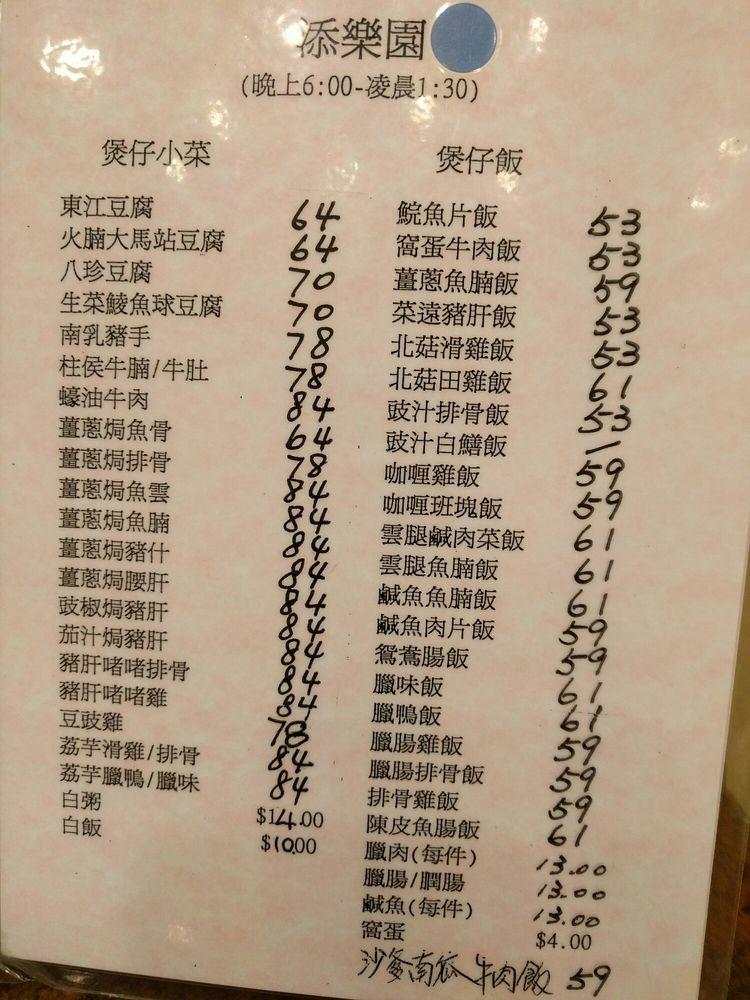 添樂園
(晚上6:00-凌晨1:30)
煲仔小菜
東江豆腐 64
火腩大馬站豆腐 64
八珍豆腐 70
生菜鯪魚球豆腐 70
南乳豬手 78
柱侯牛腩/牛肚 78
蠔油牛肉 84
薑蔥焗魚骨 64
薑蔥焗排骨 78
薑蔥焗魚雲 84
薑蔥焗魚腩 84
薑蔥焗豬什 84
薑蔥焗腰肝 84
豉椒焗豬肝 84
茄汁焗豬肝 84
豬肝啫啫排骨 84
豬肝啫啫雞 84
豆豉雞 78
荔芋滑雞/排骨 84
荔芋臘鴨/臘味 84
白粥 $14.00
白飯 $10.00
煲仔飯
鯇魚片飯 53
窩蛋牛肉飯 53
薑蔥魚腩飯 59
菜遠豬肝飯 53
北菇滑雞飯 53
北菇田雞飯 61
豉汁排骨飯 53
豉汁白鱔飯 —
咖喱雞飯 59
咖喱班塊飯 59
雲腿鹹肉菜飯 61
雲腿魚腩飯 61
鹹魚魚腩飯 61
鹹魚肉片飯 59
鴛鴦腸飯 59
臘味飯 61
臘鴨飯 61
臘腸雞飯 59
臘腸排骨飯 59
排骨雞飯 59
陳皮魚腸飯 61
臘肉(每件) 13.00
臘腸/膶腸 13.00
鹹魚(每件) 13.00
窩蛋 $4.00
沙爹南瓜牛肉飯 59